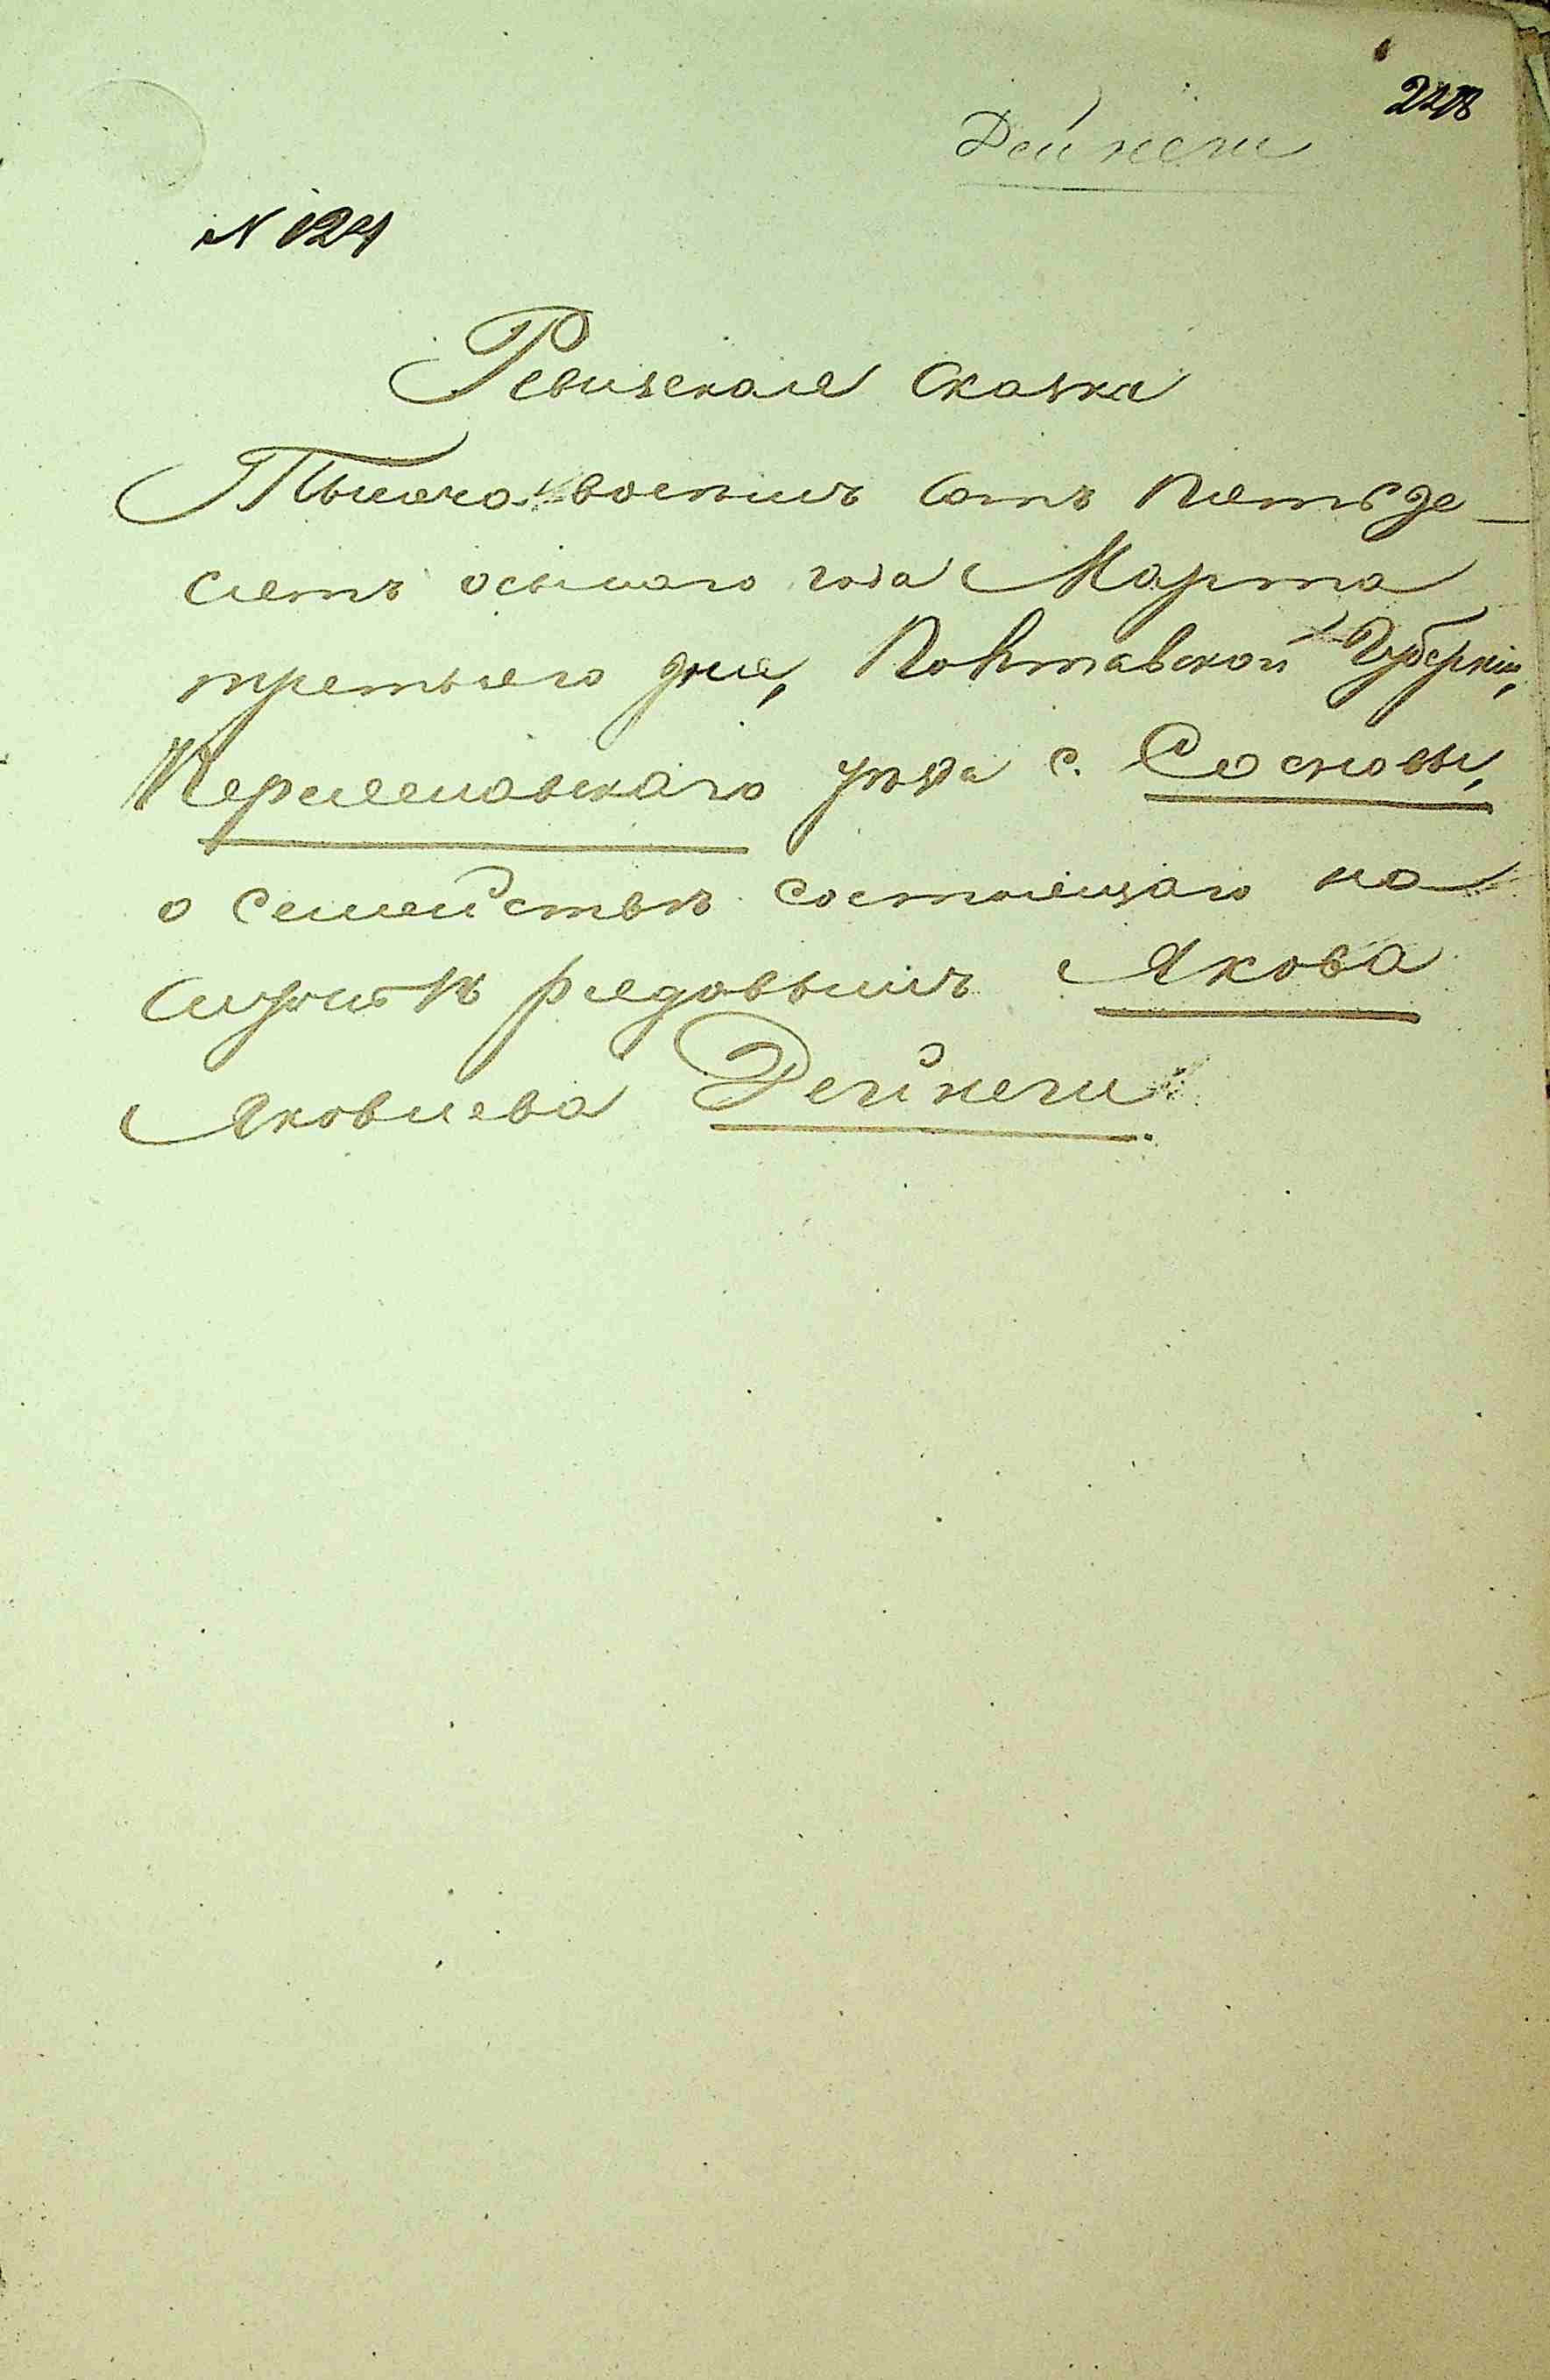 Дейнеги
N 124
Ревизская Сказка
Тысяча восемь сотъ пятьде-
сятъ осьмаго года Марта
третьяго дня, Полтавской Губерніи,
Переяславскаго уѣзда с. Сосновы,
о Семействѣ состоящаго на
службѣ рядовымъ Якова
Яковлева Дейнеги.